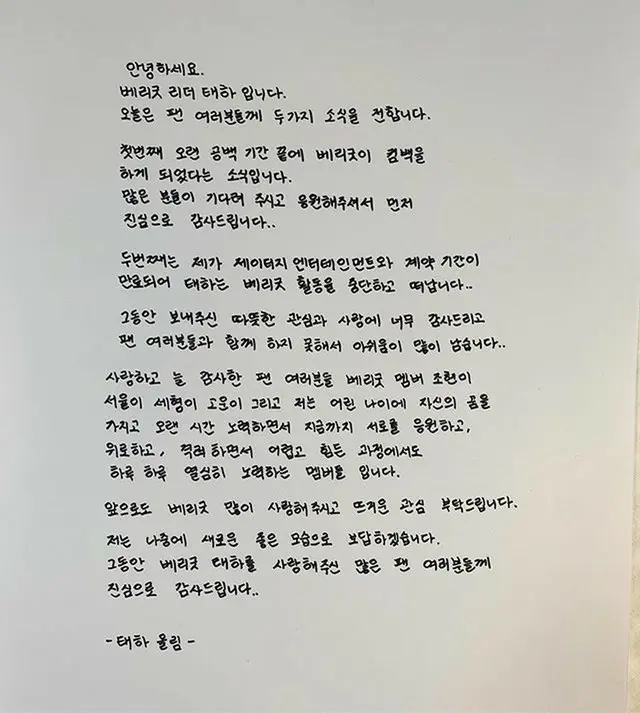 안녕하세요.
베리굿 리더 태하 입니다.
오늘은 팬 여러분들께 두가지 소식을 전합니다.
첫번째 오랜 공백 기간 끝에 베리굿이 컴백을
하게 되었다는 소식입니다.
많은 분들이 기다려 주시고 응원해주셔서 먼저
진심으로 감사드립니다..
두번째는 제가 제이티지 엔터테인먼트와 계약 기간이
만료되어 태하는 베리굿 활동을 중단하고 떠납니다..
그동안 보내주신 따뜻한 관심과 사랑에 너무 감사드리고
팬 여러분들과 함께 하지 못해서 아쉬움이 많이 남습니다..
사랑하고 늘 감사한 팬 여러분들 베리굿 멤버 조현이
서율이 세형이 고운이 그리고 저는 어린 나이에 자신의 꿈을
가지고 오랜 시간 노력하면서 지금까지 서로를 응원하고,
위로하고, 격려 하면서 어렵고 힘든 과정에서도
하루 하루 열심히 노력하는 멤버들 입니다.
앞으로도 베리굿 많이 사랑해주시고 뜨거운 관심 부탁드립니다.
저는 나중에 새로운 좋은 모습으로 보답하겠습니다.
그동안 베리굿 태하를 사랑해주신 많은 팬 여러분들께
진심으로 감사드립니다..
- 태하 올림 -